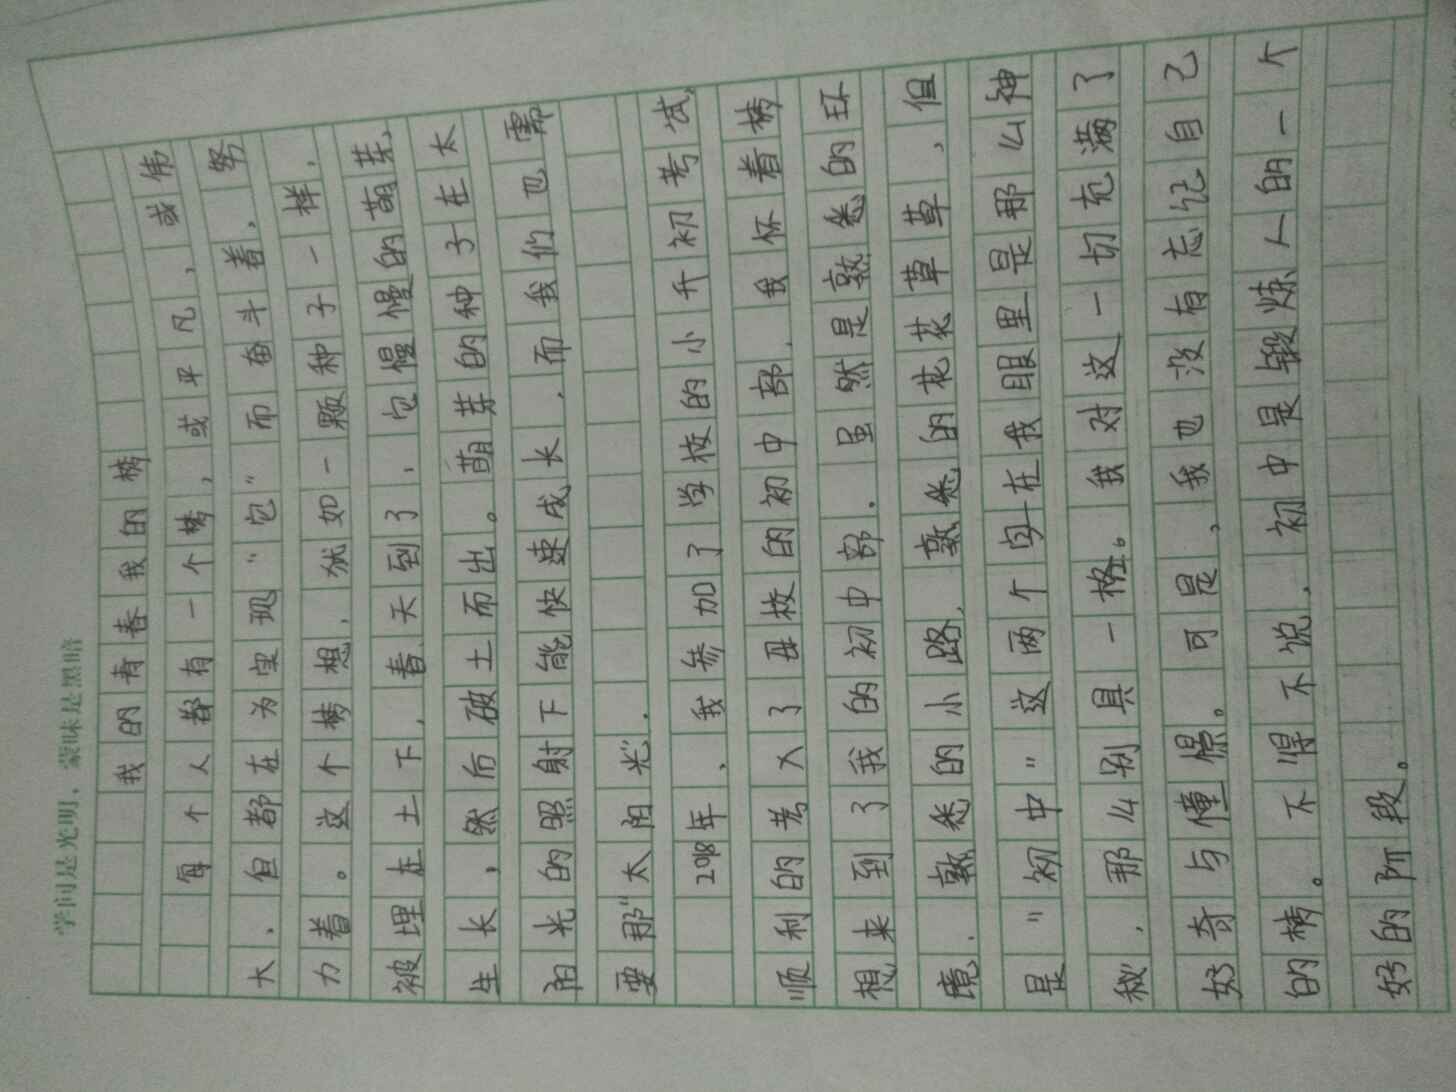 学问是光明，蒙昧是黑暗
我的青春我的梦
每个人都有一个梦，或平凡，或伟
大，但都在为实现“它”而奋斗着，努
力着。这个梦想，犹如一颗种子一样，
被埋在土下，春天到了，它慢慢的萌芽，
生长，然后破土而出。萌芽的种子在太
阳光的照射下能快速成长，而我们也需
要那“太阳光”。
2018年，我参加了学校的小升初考试，
顺利的考入了母校的初中部，我怀着梦
想来到了我的初中部。虽然是熟悉的环
境，熟悉的小路，熟悉的花花草草，但
是“初中”这两个字在我眼里是那么神
秘，那么别具一格。我对这一切充满了
好奇与憧憬。可是，我也没有忘记自己
的梦。不得不说，初中是锻炼人的一个
好的阶段。